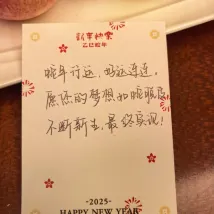 新年快樂
乙巳蛇年
蛇年行运，好运连连，
愿你的梦想如蛇蜕
不断新生，最终实现！
-2025-
HAPPY NEW YEAR